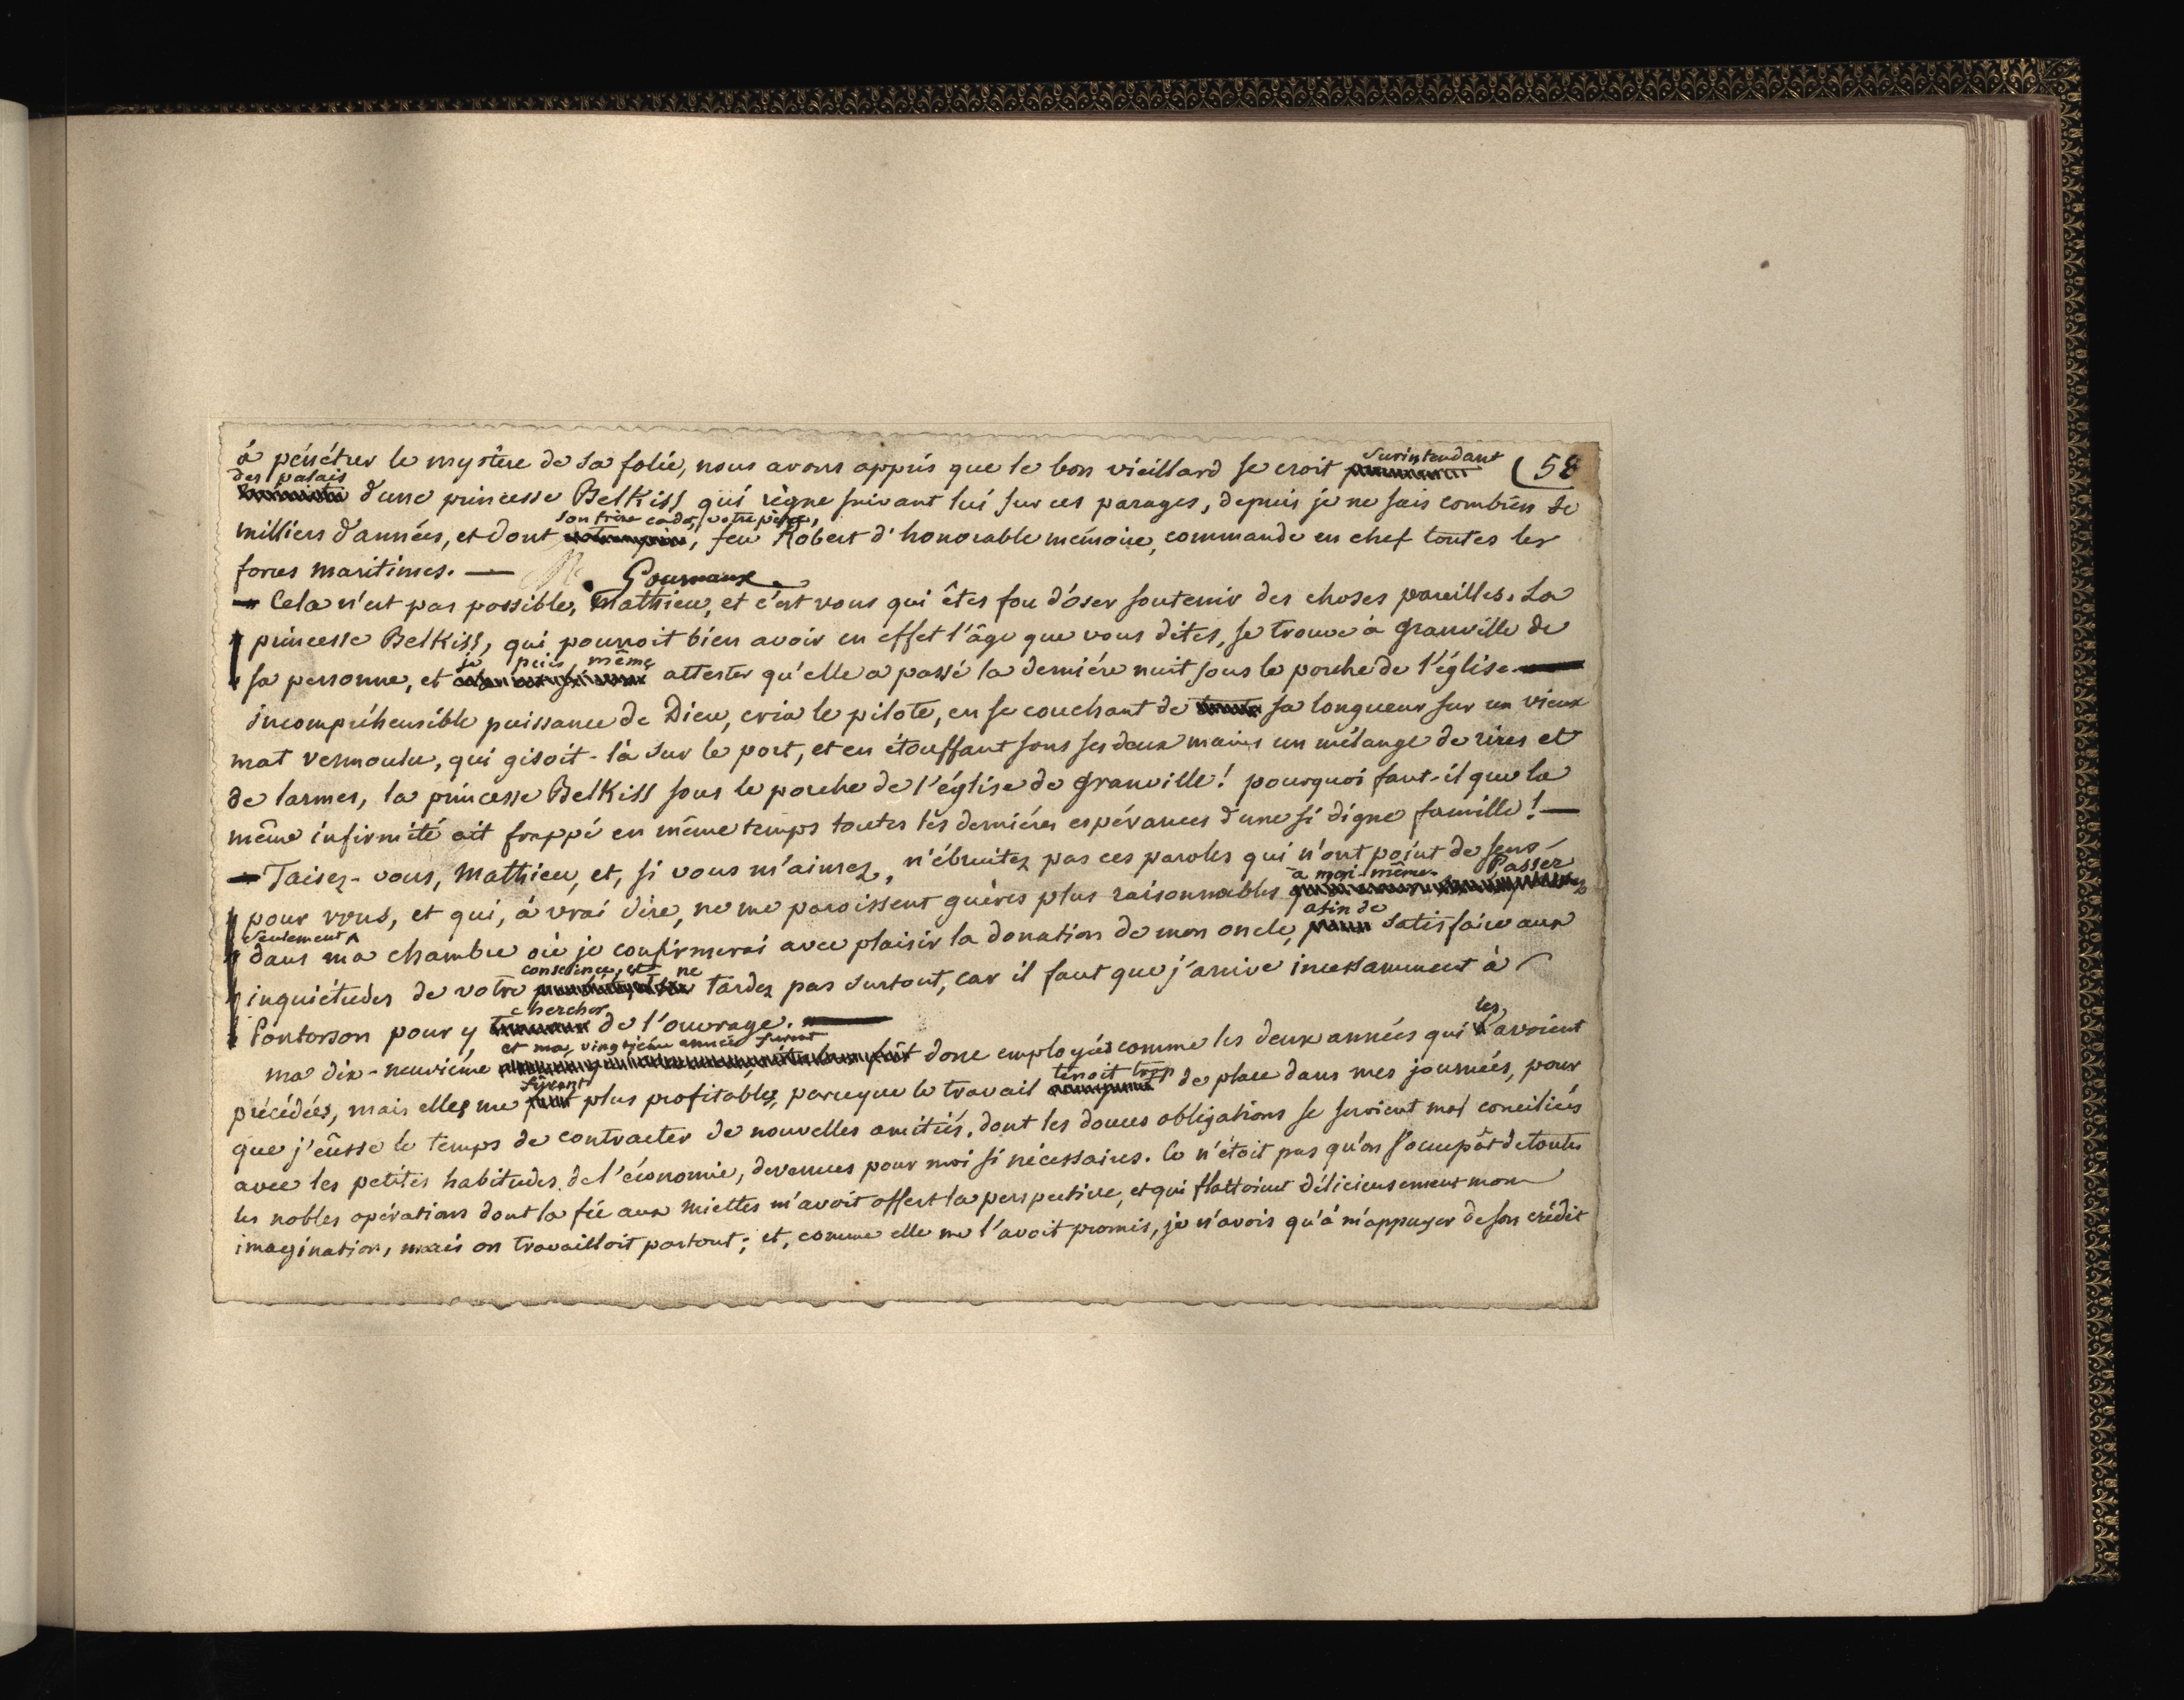 58
à pénétrer le mystère de sa folie, nous avons appris que le bon vieillard se croit surintendant
des palais d'une princesse Belkiss, qui règne suivant lui sur ces parages, depuis je ne sais combien de
milliers d'années, et dont son frère cadet, votre père, feu Robert d'honorable mémoire, commande en chef toutes les
forces maritimes. —
Gournaux.
— Cela n'est pas possible, Mathieu, et c'est vous qui êtes fou d'oser soutenir des choses pareilles. La
princesse Belkiss, qui pourroit bien avoir en effet l'âge que vous dites, se trouve à Granville de
sa personne, et je puis même attester qu'elle a passé la dernière nuit sous le porche de l'église. —
incompréhensible puissance de Dieu, cria le pilote, en se couchant de sa longueur sur un vieux
mat vermoulu, qui gisoit-là sur le port, et en étouffant sous ses deux mains un mélange de rires et
de larmes, la princesse Belkiss sous le porche de l'église de Granville! pourquoi faut-il que la
même infirmité ait frappé en même temps toutes les dernières espérances d'une si digne famille! —
— Taisez-vous, Mathieu, et, si vous m'aimez, n'ébruitez pas ces paroles qui n'ont point de sens
pour vous, et qui, à vrai dire, ne me paroissent guères plus raisonnables à moi-même. Passez
seulement dans ma chambre où je confirmerai avec plaisir la donation de mon oncle, afin de satisfaire aux
inquiétudes de votre conscience, et ne tardez pas surtout, car il faut que j'arrive incessamment à
Pontorson pour y chercher de l'ouvrage. —
ma dix-neuvième et ma vingtième année furent donc employées comme les deux années qui les avoient
précédées, mais elles me furent plus profitables, parceque le travail tenoit trop de place dans mes journées, pour
que j'eûsse le temps de contracter de nouvelles amitiés, dont les douces obligations se seroient mal conciliées
avec les petites habitudes de l'économie, devenues pour moi si nécessaires. Ce n'étoit pas qu'on s'occupât de toutes
les nobles opérations dont la fée aux miettes m'avoit offert la perspective, et qui flattoient délicieusement mon
imagination, mais on travailloit partout; et, comme elle me l'avoit promis, je n'avois qu'à m'appuyer de son crédit